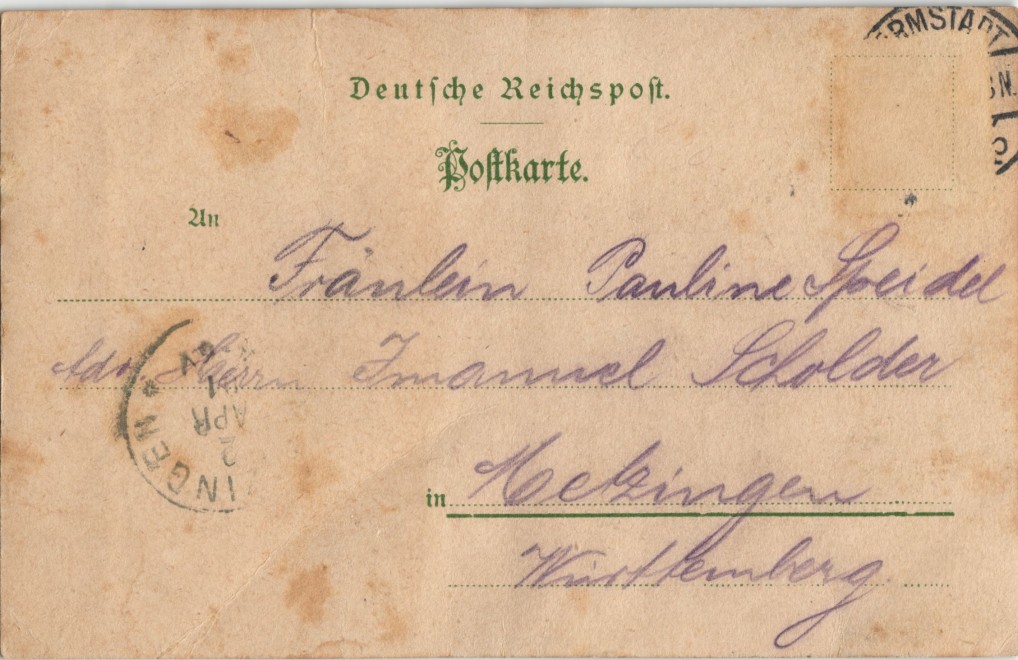 Deutsche Reichspost.
Postkarte.
An
Fräulein Pauline Speidel
Adr. Herrn Imanuel Scholder
in Metzingen
Württemberg.
RMSTADT
N.
INGEN
2
APR